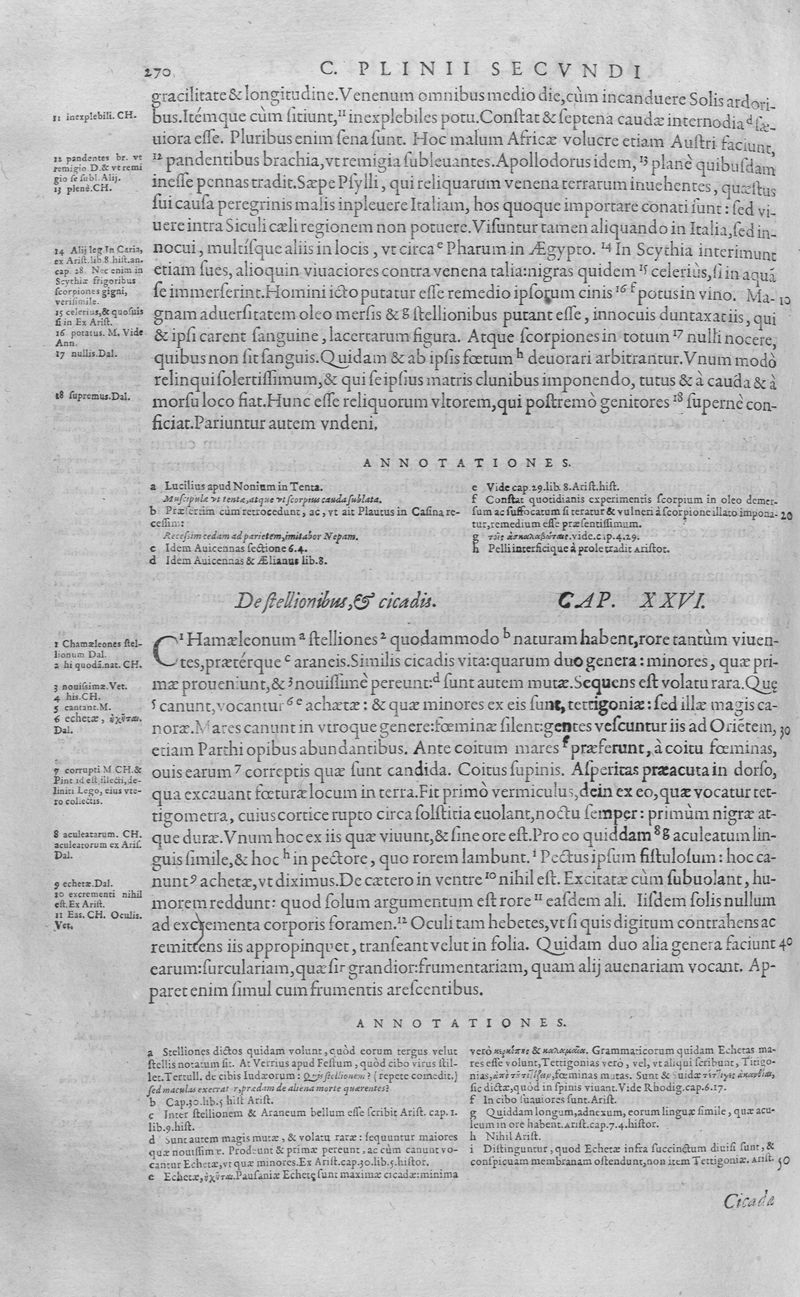 270
C. PLINII SECVNDI
gracilitate & longitudine. Venenum omnibus medio die, cùm incanduere Solis ardori-
bus. Itémque cùm ſitiunt, 11 inexplebiles potu. Conſtat & ſeptena caudæ internodia d ſæ-
uiora eſſe. Pluribus enim ſena ſunt. Hoc malum Africæ volucre etiam Auſtri faciunt,
12 pandentibus brachia, vt remigia ſubleuantes. Apollodorus idem, 13 planè quibuſdam
ineſſe pennas tradit. Sæpe Pſylli, qui reliquarum venena terrarum inuehentes, quæſtus
ſui cauſa peregrinis malis inpleuere Italiam, hos quoque importare conati ſunt: ſed vi-
uere intra Siculi cæli regionem non potuere. Viſuntur tamen aliquando in Italia, ſed in-
nocui, multiſque aliis in locis, vt circa e Pharum in Ægypto. 14 In Scythia interimunt
etiam ſues, alioquin viuaciores contra venena talia: nigras quidem 15 celeriùs, ſi in aquā
ſe immerſerint. Homini icto putatur eſſe remedio ipſorum cinis 16 f potus in vino. Ma- 10
gnam aduerſitatem oleo merſis & g ſtellionibus putant eſſe, innocuis duntaxat iis, qui
& ipſi carent ſanguine, lacertarum figura. Atque ſcorpiones in totum 17 nulli nocere,
quibus non ſit ſanguis. Quidam & ab ipſis fœtum h deuorari arbitrantur. Vnum modò
relinqui ſolertiſſimum, & qui ſe ipſius matris clunibus imponendo, tutus & à cauda & à
morſu loco fiat. Hunc eſſe reliquorum vltorem, qui poſtremò genitores 18 ſupernè con-
ficiat. Pariuntur autem vndeni.
11 inexplebili. CH.
12 pandentes br. vt
remigio D. & vt remi
gio ſe ſubl. Alij.
13 plenè. CH.
14 Alij leg In Caria,
ex Ariſt. lib. 8. hiſt. an.
cap. 28. Nec enim in
Scythiæ frigoribus
ſcorpiones gigni,
veriſimile.
15 celerius, & quoſuis
ſi in Ex Ariſt.
16 potatus. M. Vide
Ann.
17 nullis. Dal.
18 ſupremus. Dal.
ANNOTATIONES.
a Lucilius apud Nonium in Tenta.
Muſcipulæ vt tentæ, atque vt ſcorpius cauda ſublata.
b Præſertim cùm retrocedunt, ac, vt ait Plautus in Caſina re-
ceſſim:
Receſſim cedam ad parietem, imitabor Nepam.
c Idem Auicennas ſectione 6.4.
d Idem Auicennas & Ælianus lib. 8.
e Vide cap. 29. lib. 8. Ariſt. hiſt.
f Conſtat quotidianis experimentis ſcorpium in oleo demer-
ſum ac ſuffocatum ſi teratur & vulneri à ſcorpione illato impona- 20
tur, remedium eſſe præſentiſſimum.
g τοῖς ἀσκαλαβώταις. vide. cap. 4. 29.
h Pelli interficique à prole tradit Ariſtot.
De ſtellionibus, & cicadis. CAP. XXVI.
C 1 Hamæleonum a ſtelliones 2 quodammodo b naturam habent, rore tantùm viuen-
tes, præterque c araneis. Similis cicadis vita: quarum duo genera: minores, quæ pri-
mæ proueniunt, & 3 nouiſſimè pereunt: d ſunt autem mutæ. Sequens eſt volatu rara. Quę
5 canunt, vocantur 6 e achætæ: & quæ minores ex eis ſunt, tettigoniæ: ſed illæ magis ca-
noræ. Mares canunt in vtroque genere: fœminæ ſilent: gentes veſcuntur iis ad Oriētem, 30
etiam Parthi opibus abundantibus. Ante coitum mares f præferunt, à coitu fœminas,
ouis earum 7 correptis quæ ſunt candida. Coitus ſupinis. Aſperitas præacuta in dorſo,
qua excauant fœturæ locum in terra. Fit primò vermiculus, dein ex eo, quæ vocatur tet-
tigometra, cuius cortice rupto circa ſolſtitia euolant, noctu ſemper: primùm nigræ at-
que duræ. Vnum hoc ex iis quæ viuunt, & ſine ore eſt. Pro eo quiddam 8 g aculeatum lin-
guis ſimile, & hoc h in pectore, quo rorem lambunt. i Pectus ipſum fiſtuloſum: hoc ca-
nunt 9 achetæ, vt diximus. De cætero in ventre 10 nihil eſt. Excitatæ cùm ſubuolant, hu-
morem reddunt: quod ſolum argumentum eſt rore 11 eaſdem ali. Iiſdem ſolis nullum
ad excrementa corporis foramen. 12 Oculi tam hebetes, vt ſi quis digitum contrahens ac
remittens iis appropinquet, tranſeant velut in folia. Quidam duo alia genera faciunt 40
earum: ſurculariam, quæ ſit grandior: frumentariam, quam alij auenariam vocant. Ap-
paret enim ſimul cum frumentis areſcentibus.
1 Chamæleones ſtel-
lionum Dal.
2 hi quodā. nat. CH.
3 nouiſſimæ. Vet.
4 his. CH.
5 cantant. M.
6 echetæ, ἠχῆται.
Dal.
7 corrupti M. CH. &
Pint. id eſt illecti, de-
liniti Lego, eius vte-
ro collectis.
8 aculeatarum. CH.
aculeatorum ex Ariſ.
Dal.
9 echetæ. Dal.
10 excrementi nihil
eſt. Ex Ariſt.
11 Eas. CH. Oculis.
Vet.
ANNOTATIONES.
a Stelliones dictos quidam volunt, quòd eorum tergus velut
ſtellis notatum ſit. At Verrius apud Feſtum, quòd cibo virus ſtil-
let. Tertull. de cibis Iudæorum: Quis ſtellionem? (repete comedit.)
ſed maculas execratur, prædam de aliena morte quærentes?
b Cap. 30. lib. 5 hiſt Ariſt.
c Inter ſtellionem & Araneum bellum eſſe ſcribit Ariſt. cap. 1.
lib. 9. hiſt.
d Sunt autem magis mutæ, & volatu raræ: ſequuntur maiores
quæ nouiſſimæ. Prodeunt & primæ pereunt, ac cùm canunt vo-
cantur Echetæ, vt quæ minores. Ex Ariſt. cap. 30. lib. 5. hiſtor.
e Echetæ, ἠχῆται. Pauſaniæ Echetę ſunt maximæ cicadæ: minima
verò & καλαμαῖαι. Grammaticorum quidam Echetas ma-
res eſſe volunt, Tettigonias verò, vel, vt aliqui ſcribunt, Titigo-
nias, fœminas mutas. Sunt & Suidæ
ſic dictæ, quòd in ſpinis viuant. Vide Rhodig. cap. 6. 17.
f In cibo ſuauiores ſunt. Ariſt.
g Quiddam longum, adnexum, eorum linguæ ſimile, quæ acu-
leum in ore habent. Ariſt. cap. 7. 4. hiſtor.
h Nihil Ariſt.
i Diſtinguntur, quod Echetæ infra ſuccinctum diuiſi ſunt, &
conſpicuam membranam oſtendunt, non item Tettigoniæ. Ariſt. 50
Cicada